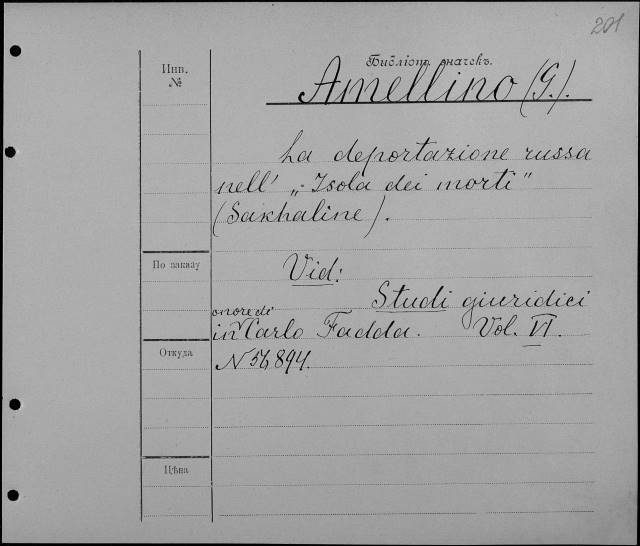 201
Библіот. значекъ.
Инв.
№
Amellino (G.).
La deportazione russa
nell' „Isola dei morti"
(Sakhaline).
По заказу
Vid:
Studi giuridici
onore di
in Carlo Fadda. Vol. VI.
Откуда
N 56894.
Цѣна